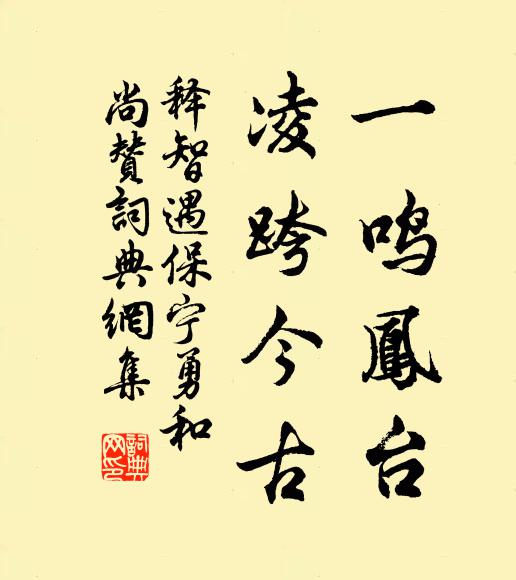 一鸣鳳台
凌跨今古
释智遇保宁勇和
尚赞詞典網集
詞典网印